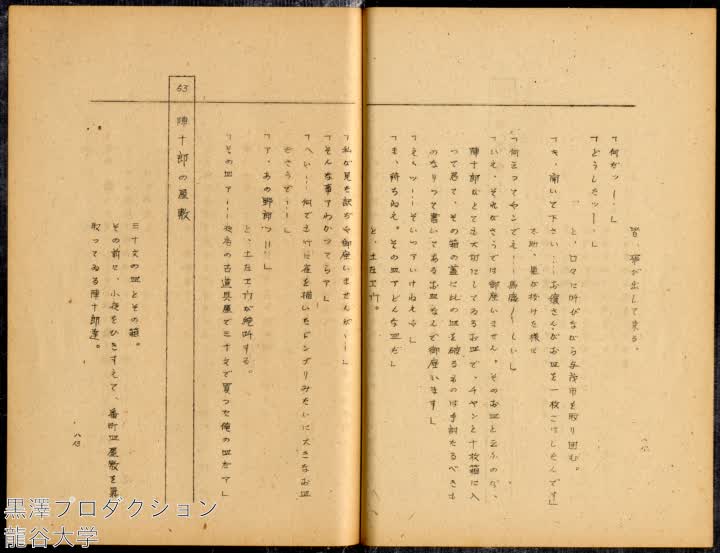 皆、飛び出して来る。
「何がッ……」
「どうしたッ……」
と、口々に叫びながら与茂市を取り囲む。
「き、聞いて下さい……お嬢さんがお皿を一枚こはしたんです」
「何云ってヤンでえ……馬鹿〳〵しい」
「いえ、それがさうでは御座いません。そのお皿と云ふのが、
陣十郎がとても大切にしてゐるお皿で、チャンと十枚箱に入
って居て、その箱の蓋に此の皿を破るものは手討たるべきも
のなりって書いてあるお皿なんで御座います」
「えゝッ……そいつァいけねえや」
「ま、待ちねえ。その皿アどんな皿だ」
と、土左エ門。
「私が見た訳ぢゃ御座いませんが……」
「そんな事アわかってらア」
「へい……何でも
みたいに大きなお皿
ださうで……」
「ア、あの野郎ッ‼」
と、土左エ門が絶叫する。
「その皿ア……
の古道具屋で三十文で買つた俺の皿だア」
63 陣十郎の屋敷
三十文の皿とその箱。
その前に、小夜をひきすえて、番町皿屋敷を気
取ってゐる陣十郎達。
黒澤プロダクション
龍谷大学